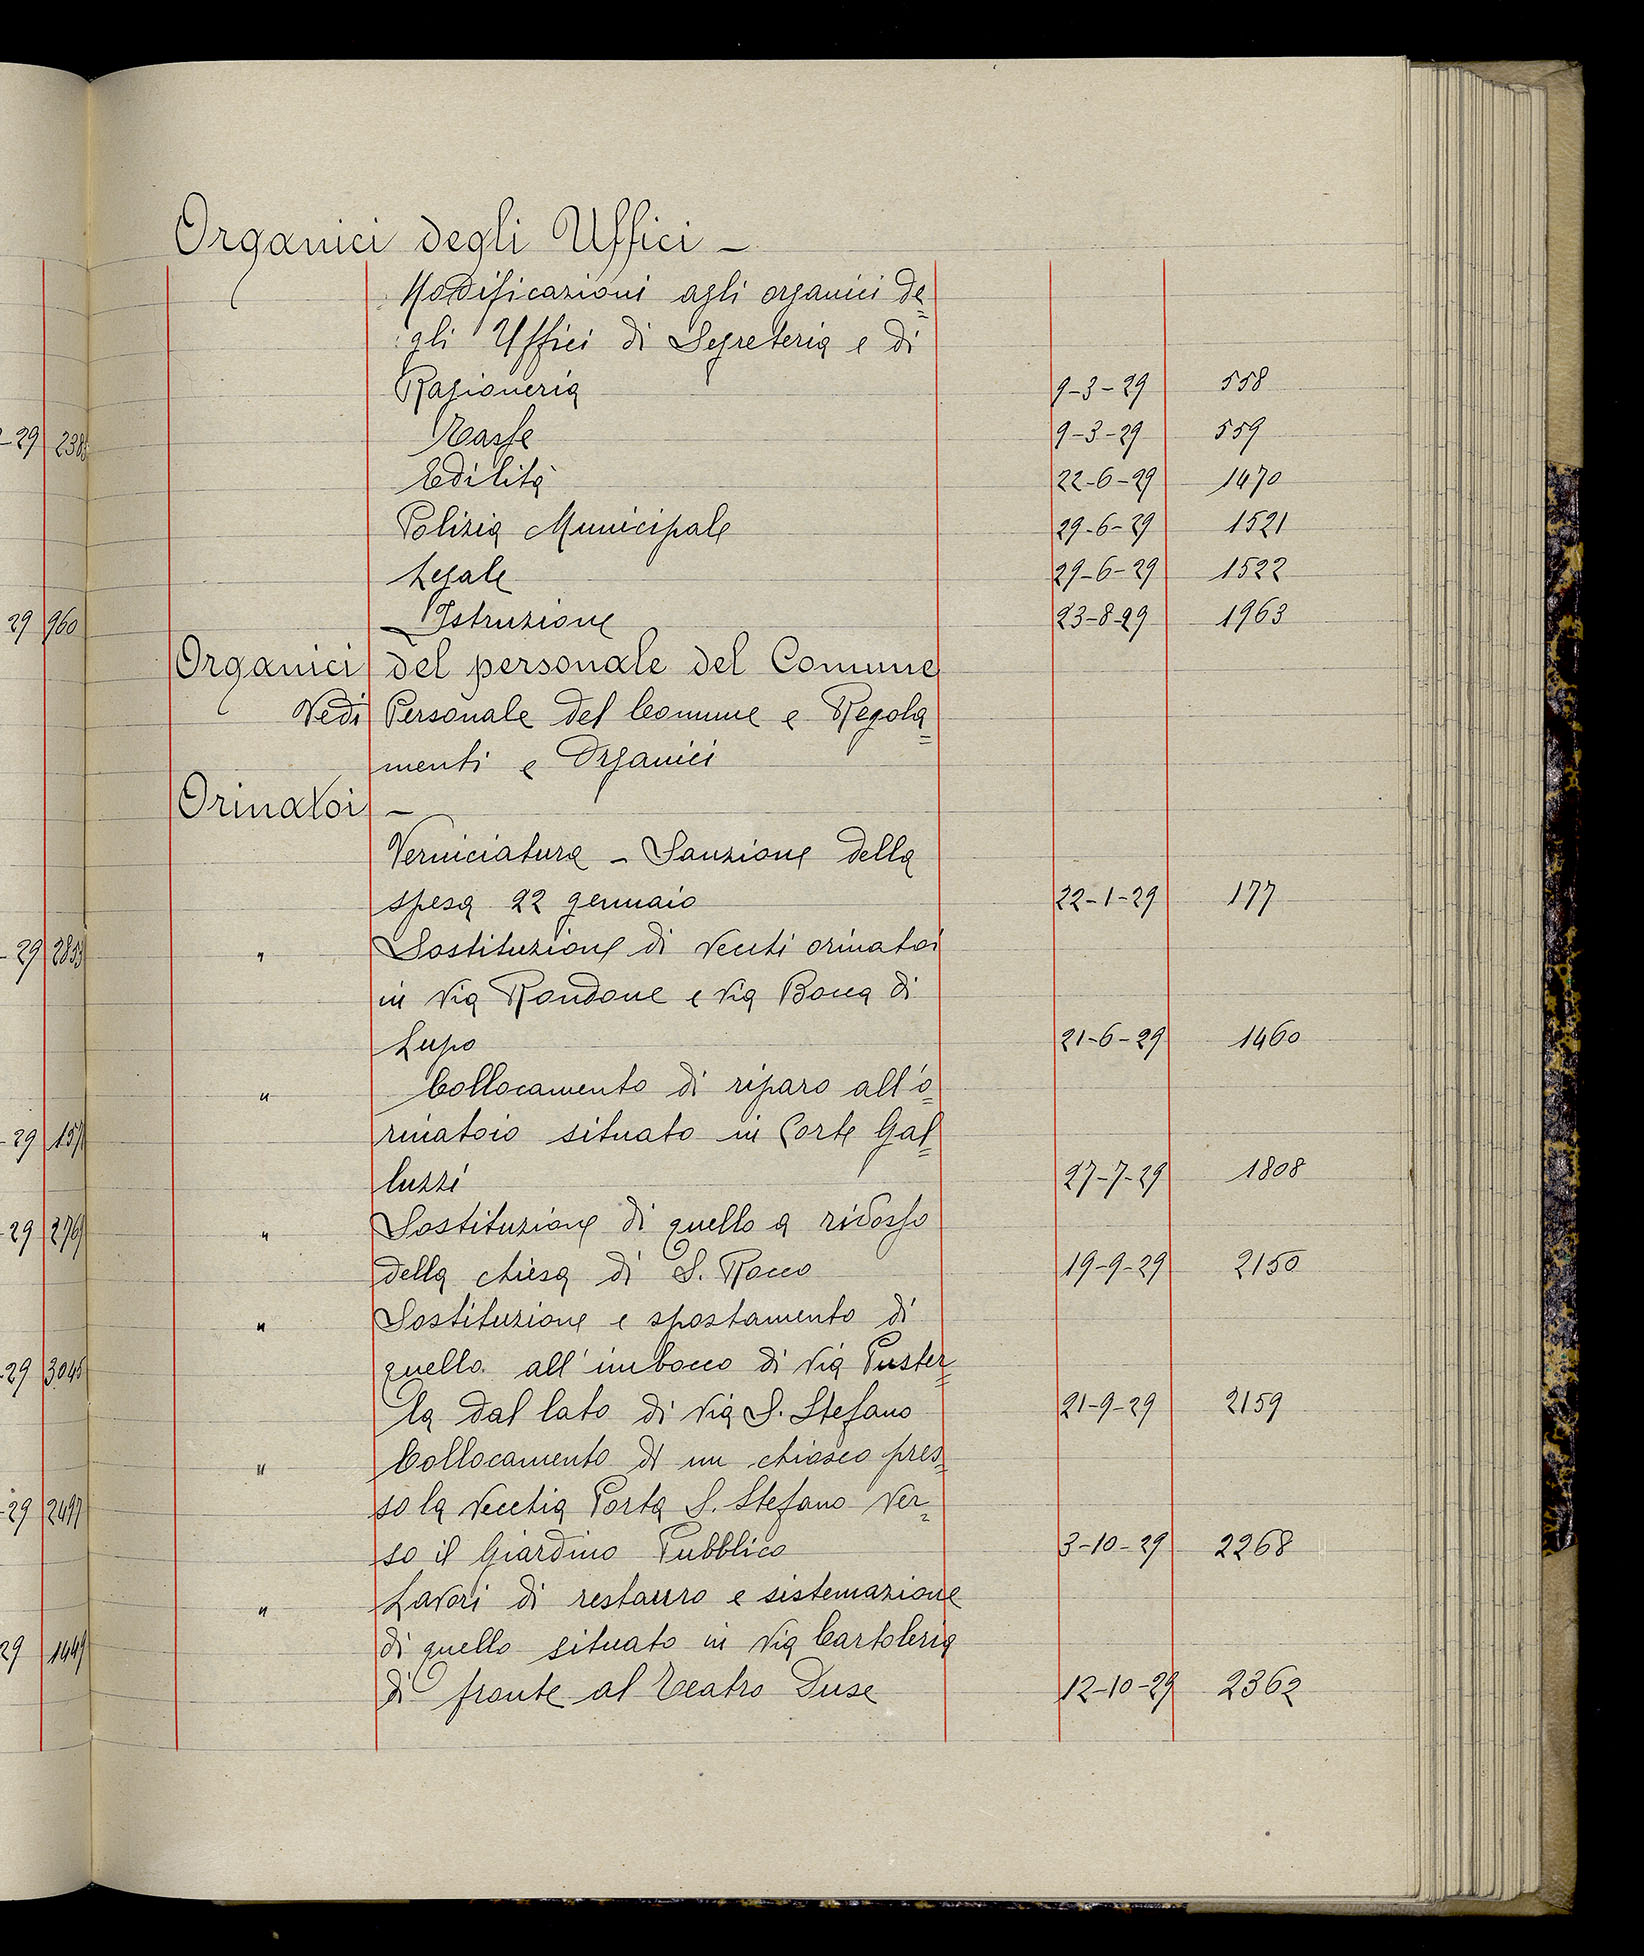 Organici degli Uffici -
Modificazioni agli organici de=
gli Uffici di Segreteria e di
Ragioneria 9-3-29 558
Tasse 9-3-29 559
Edilità 22-6-29 1470
Polizia Municipale 29-6-29 1521
Legale 29-6-29 1522
Istruzione 23-8-29 1963
Organici del personale del Comune
Vedi Personale del Comune e Regola=
menti e Organici
Orinatoi -
Verniciatura - Sanzione della
spesa 22 gennaio 22-1-29 177
" Sostituzione di vecchi orinatoi
in Via Rondone e Via Bocca di
Lupo 21-6-29 1460
" Collocamento di riparo all'o=
rinatoio situato in Corte Gal=
luzzi 27-7-29 1808
" Sostituzione di quello a ridosso
della chiesa di S. Rocco 19-9-29 2150
" Sostituzione e spostamento di
quello all'imbocco di Via Puster=
la dal lato di Via S. Stefano 21-9-29 2159
" Collocamento di un chiosco pres=
so la vecchia Porta S. Stefano ver=
so il Giardino Pubblico 3-10-29 2268
" Lavori di restauro e sistemazione
di quello situato in Via Cartoleria
di fronte al Teatro Duse 12-10-29 2362